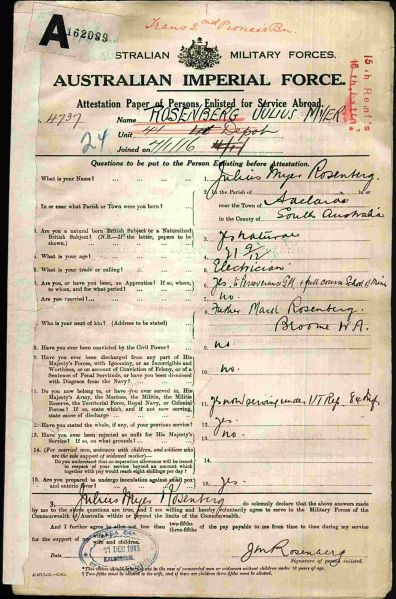 Trans 2nd Pioneer Bn.
A 162099
AUSTRALIAN MILITARY FORCES.
AUSTRALIAN IMPERIAL FORCE.
15th Reinf's
16th Battn.
Attestation Paper of Persons Enlisted for Service Abroad.
No. 4737 Name ROSENBERG JULIUS MYER
24 Unit Depot
Joined on 7/1/16
Questions to be put to the Person Enlisting before Attestation.
1. What is your Name? 1. Julius Myer Rosenberg.
2. In or near what Parish or Town were you born? 2. In the Parish of
near the Town of Adelaide
in the County of South Australia
3. Are you a natural born British Subject or a Naturalized British Subject? (N.B.—If the latter, papers to be shown.) 3.
4. What is your age? 4. 21 9/12
5. What is your trade or calling? 5. Electrician
6. Are you, or have you been, an Apprentice? If so, where, to whom, and for what period? 6. Yes. Perseverance G.M. & full course School of Mines
7. Are you married? 7. no.
8. Who is your next of kin? (Address to be stated) 8. Father Rosenberg.
Broome W.A.
9. Have you ever been convicted by the Civil Power? 9. no.
10. Have you ever been discharged from any part of His Majesty's Forces, with Ignominy, or as Incorrigible and Worthless, or on account of Conviction of Felony, or of a Sentence of Penal Servitude, or have you been dismissed with Disgrace from the Navy? 10. no.
11. Do you belong to, or have you ever served in, His Majesty's Army, the Marines, the Militia, the Militia Reserve, the Territorial Force, Royal Navy, or Colonial Forces? If so, state which, and if not now serving, state cause of discharge 11. Yes now serving under 84 Inf.
12. Have you stated the whole, if any, of your previous service? 12. yes.
13. Have you ever been rejected as unfit for His Majesty's Service? If so, on what grounds? 13. no.
14. (For married men, widowers with children, and soldiers who are the sole support of widowed mother)—
Do you understand that no separation allowance will be issued in respect of your service beyond an amount which together with pay would reach eight shillings per day? 14.
15. Are you prepared to undergo inoculation against small pox and enteric fever? 15. yes.
I, Julius Myer Rosenberg do solemnly declare that the above answers made
by me to the above questions are true, and I am willing and hereby voluntarily agree to serve in the Military Forces of the
Commonwealth of Australia within or beyond the limits of the Commonwealth.
And I further agree to allot not less than two-fifths
three-fifths of the pay payable to me from time to time during my service
for the support of my wife
Date 21 DEC 1915 KALGOORLIE
J M Rosenberg
Signature of person enlisted.